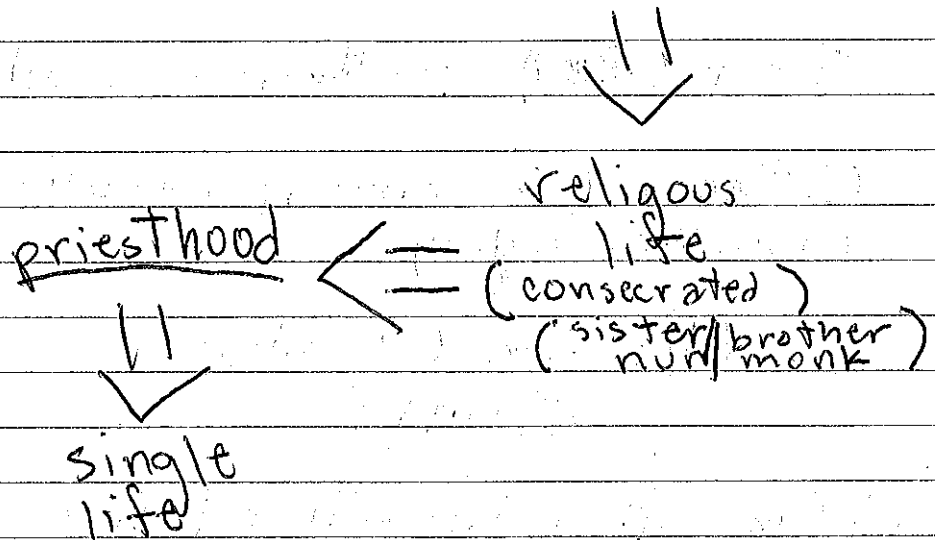 religous
life
(consecrated)
(sister/brother
nun/monk)
priesthood
single
life